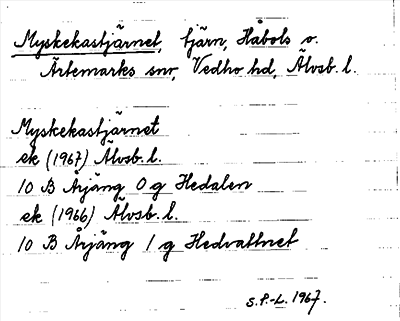 Myskekastjärnet, tjärn, Håbols o.
Ärtemarks snr, Vedbo hd, Älvsb. l.
Myskekastjärnet
ek (1967) Älvsb. l.
10 B Årjäng 0 g Hedalen
ek (1966) Älvsb. l.
10 B Årjäng 1 g Hedvattnet
S.P.-L. 1967.